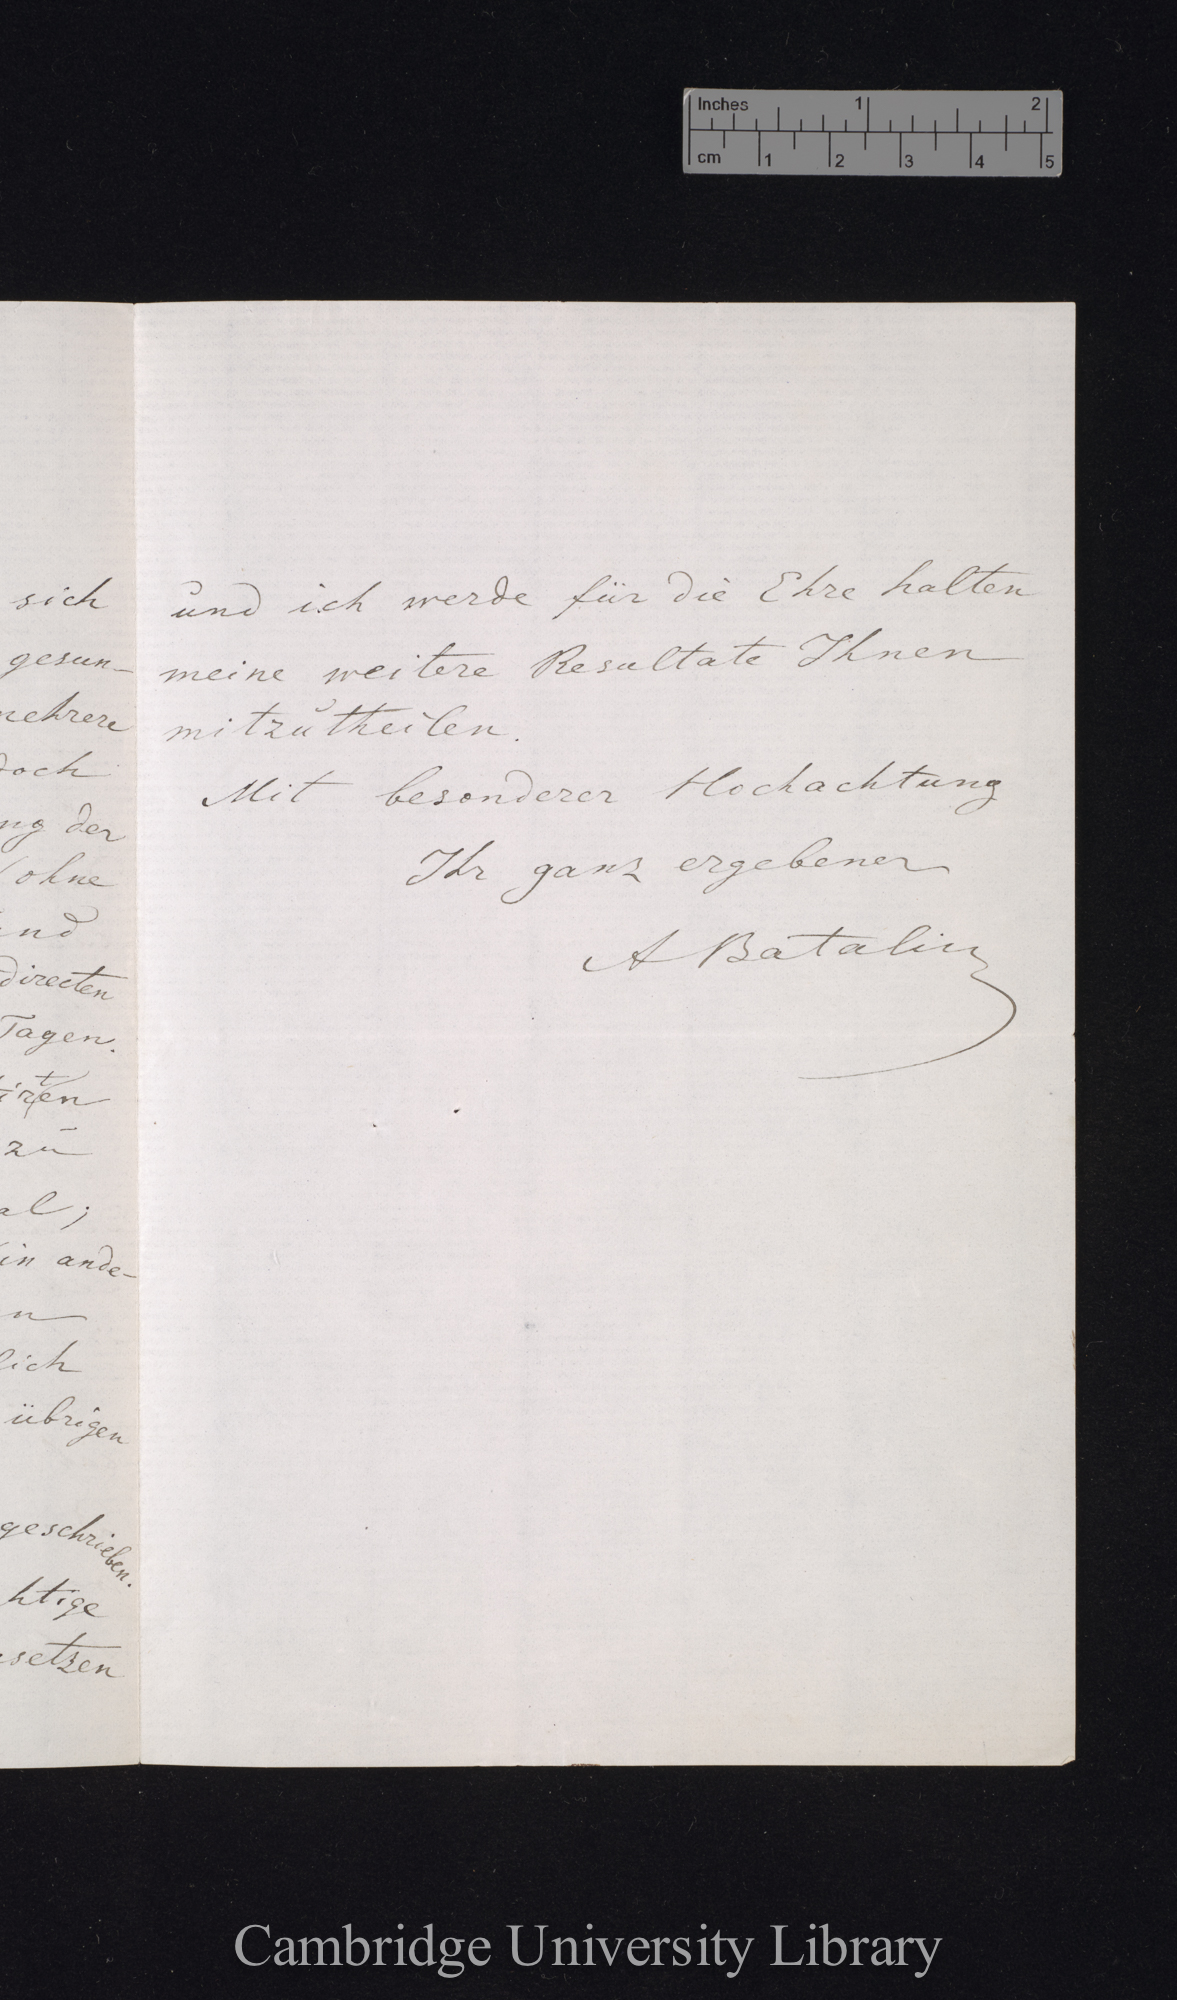 Inches 1 2
cm 1 2 3 4 5
sich
gesun-
mehrere
doch
ng der
(ohne
und
directen
Tagen.
zu
al;
in ande-
n
lich
übrigen
geschrieben.
htige
setzen
und ich werde für die Ehre halten
meine weitere Resultate Ihnen
mitzutheilen.
Mit besonderer Hochachtung
Ihr ganz ergebener
A Batalin
Cambridge University Library